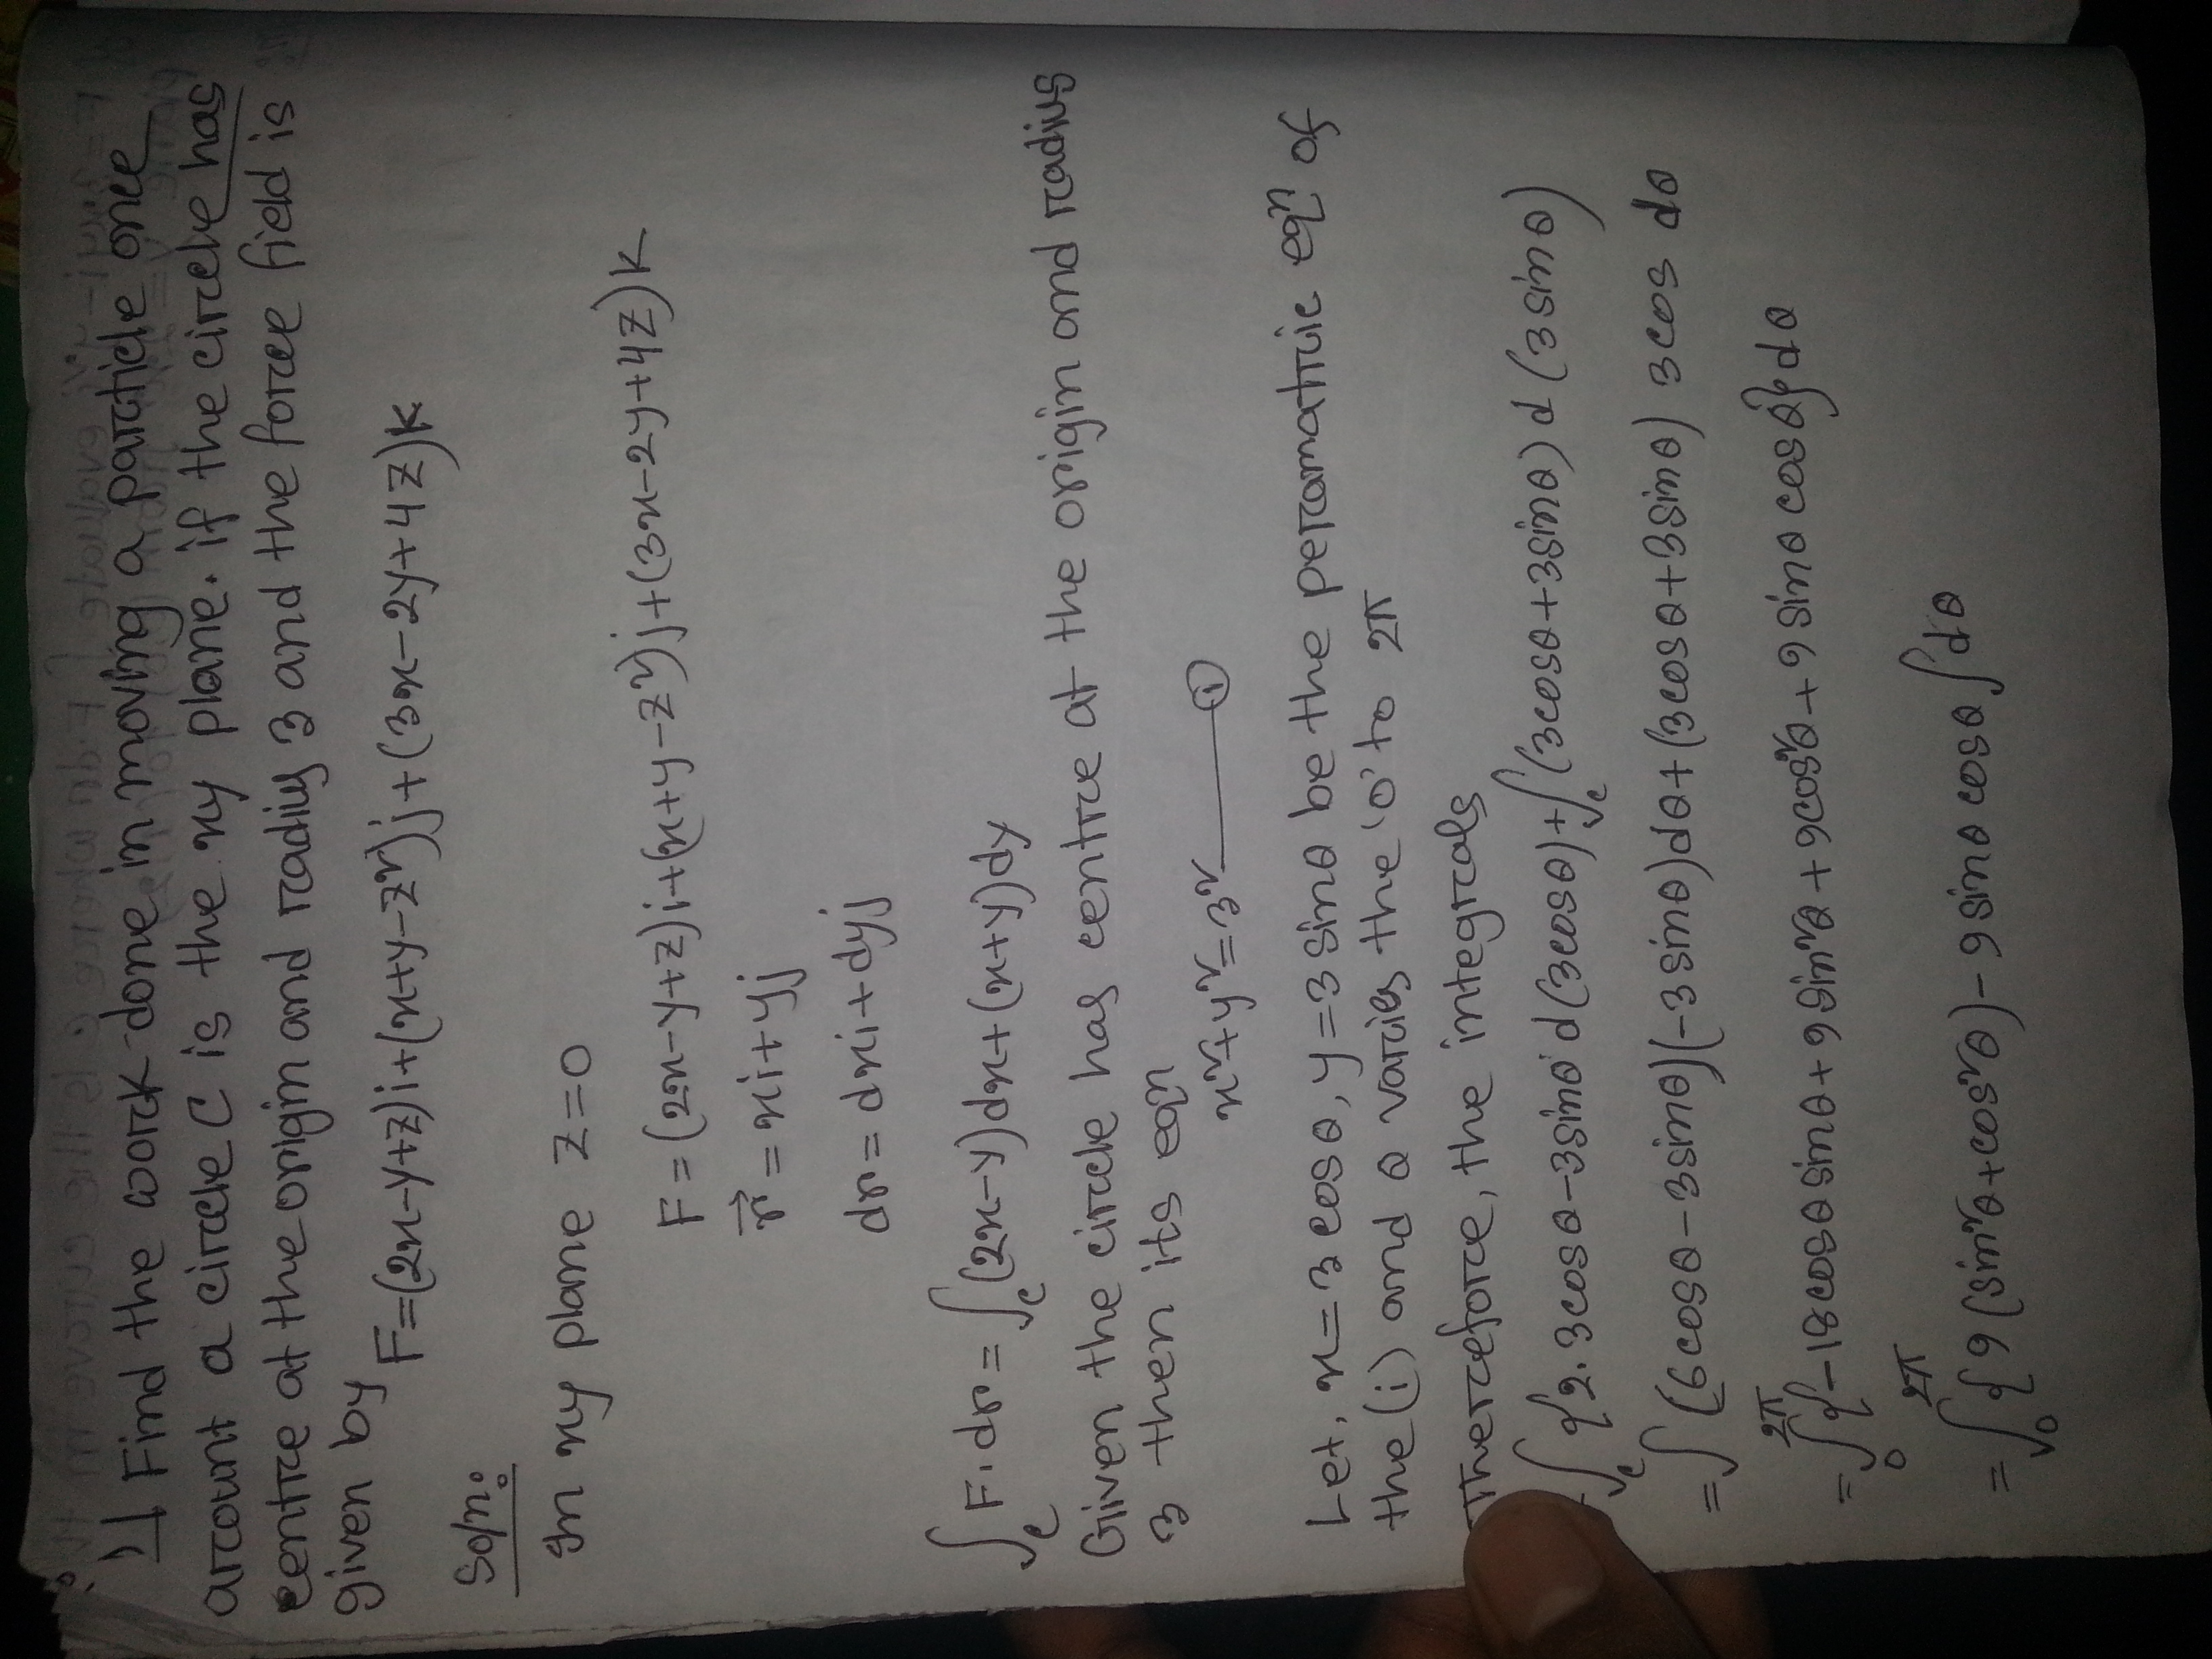 1/ Find the work done in moving a particle once
arount a circle C is the xy plane. if the circle has
centre at the origin and radius 3 and the force field is
given by
F=(2x-y+z)i+(x+y-z²)j+(3x-2y+4z)k
Soln:
In xy plane z=0
F=(2x-y+z)i+(x+y-z²)j+(3x-2y+4z)k
r⃗=xi+yj
dr=dxi+dyj
∫c F.dr=∫c(2x-y)dx+(x+y)dy
Given the circle has centre at the origin and radius
3 then its eqn
x²+y²=3² —— ①
Let, x=3cosθ, y=3sinθ be the peramatric eqn of
the (i) and θ varies the '0' to 2π
Therefore, the integrals
∫c{2.3cosθ-3sinθ d(3cosθ)+∫c(3cosθ+3sinθ)d(3sinθ)
=∫(6cosθ-3sinθ)(-3sinθ)dθ+(3cosθ+3sinθ) 3cos dθ
=∫₀^2π{-18cosθsinθ+9sin²θ+9cos²θ+9sinθcosθ}dθ
=∫₀^2π{9(sin²θ+cos²θ)-9sinθcosθ∫dθ